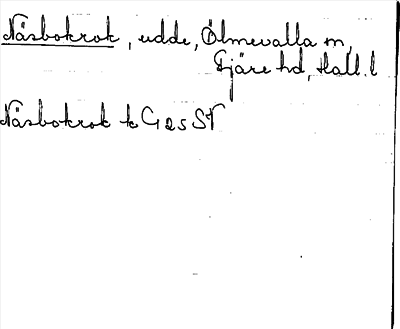 Näsbokrok, udde, Ölmevalla sn,
Fjäre hd, Hall. l
Näsbokrok k G 25 SV